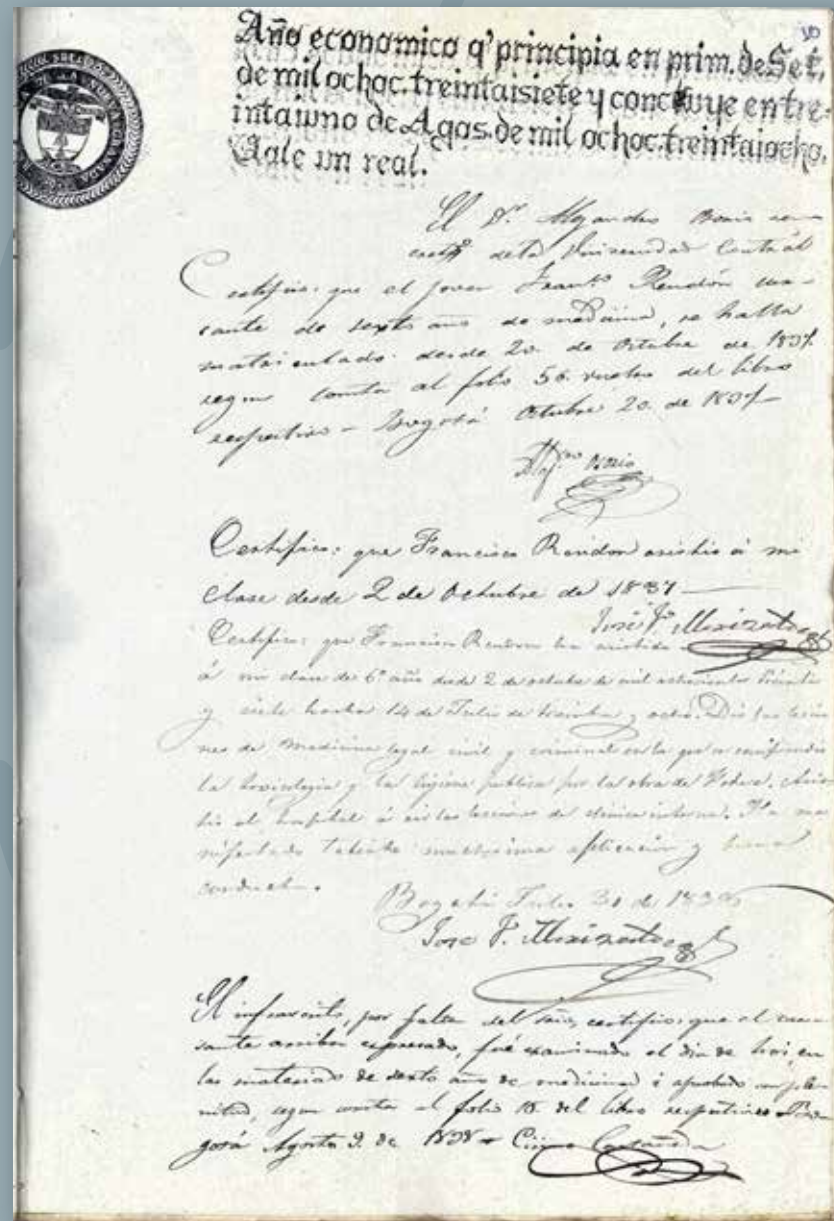 10
Año economico q' principia en prim. de Set.
de mil ochoc. treintaisiete y concluye en tre-
intaiuno de Agos. de mil ochoc. treintaiocho.
Vale un real.
El Dr. Alejandro Osorio
de la Universidad Central
Certifico: que el joven Franco. Rendón cur-
sante de sexto año de medicina, se halla
matriculado desde 20. de Octubre de 1837.
segun consta al folio 56. vuelto del libro
respectivo - Bogotá Octubre 20. de 1837 -
Alej. Osorio
Certifico: que Francisco Rendon asistio á mi
clase desde 2 de Octubre de 1837 —
José F. Merizalde
Certifico: que Francisco Rendon ha asistido
á mi clase de 6º año desde 2 de octubre de mil ochocientos treinta
y siete hasta 14 de Julio de treinta y ocho. Dió las leccio-
nes de Medicina legal civil y criminal en la que se comprende
la toxicologia y la higiene publica por la obra de Fodere. Asis-
tio al hospital á oir las lecciones de clinica interna. Ha ma-
nifestado talento muchisima aplicación y buena
conducta.
Bogotá Julio 30 de 1838
José F. Merizalde
El infrascrito, por falta del Srio, certifico: que el cur-
sante arriba expresado, fué examinado el dia de hoi, en
las materias de sexto año de medicina i aprobado con ple-
nitud, segun consta al folio 18. del libro respectivo - Bo-
gotá Agosto 9. de 1838 - Castañeda